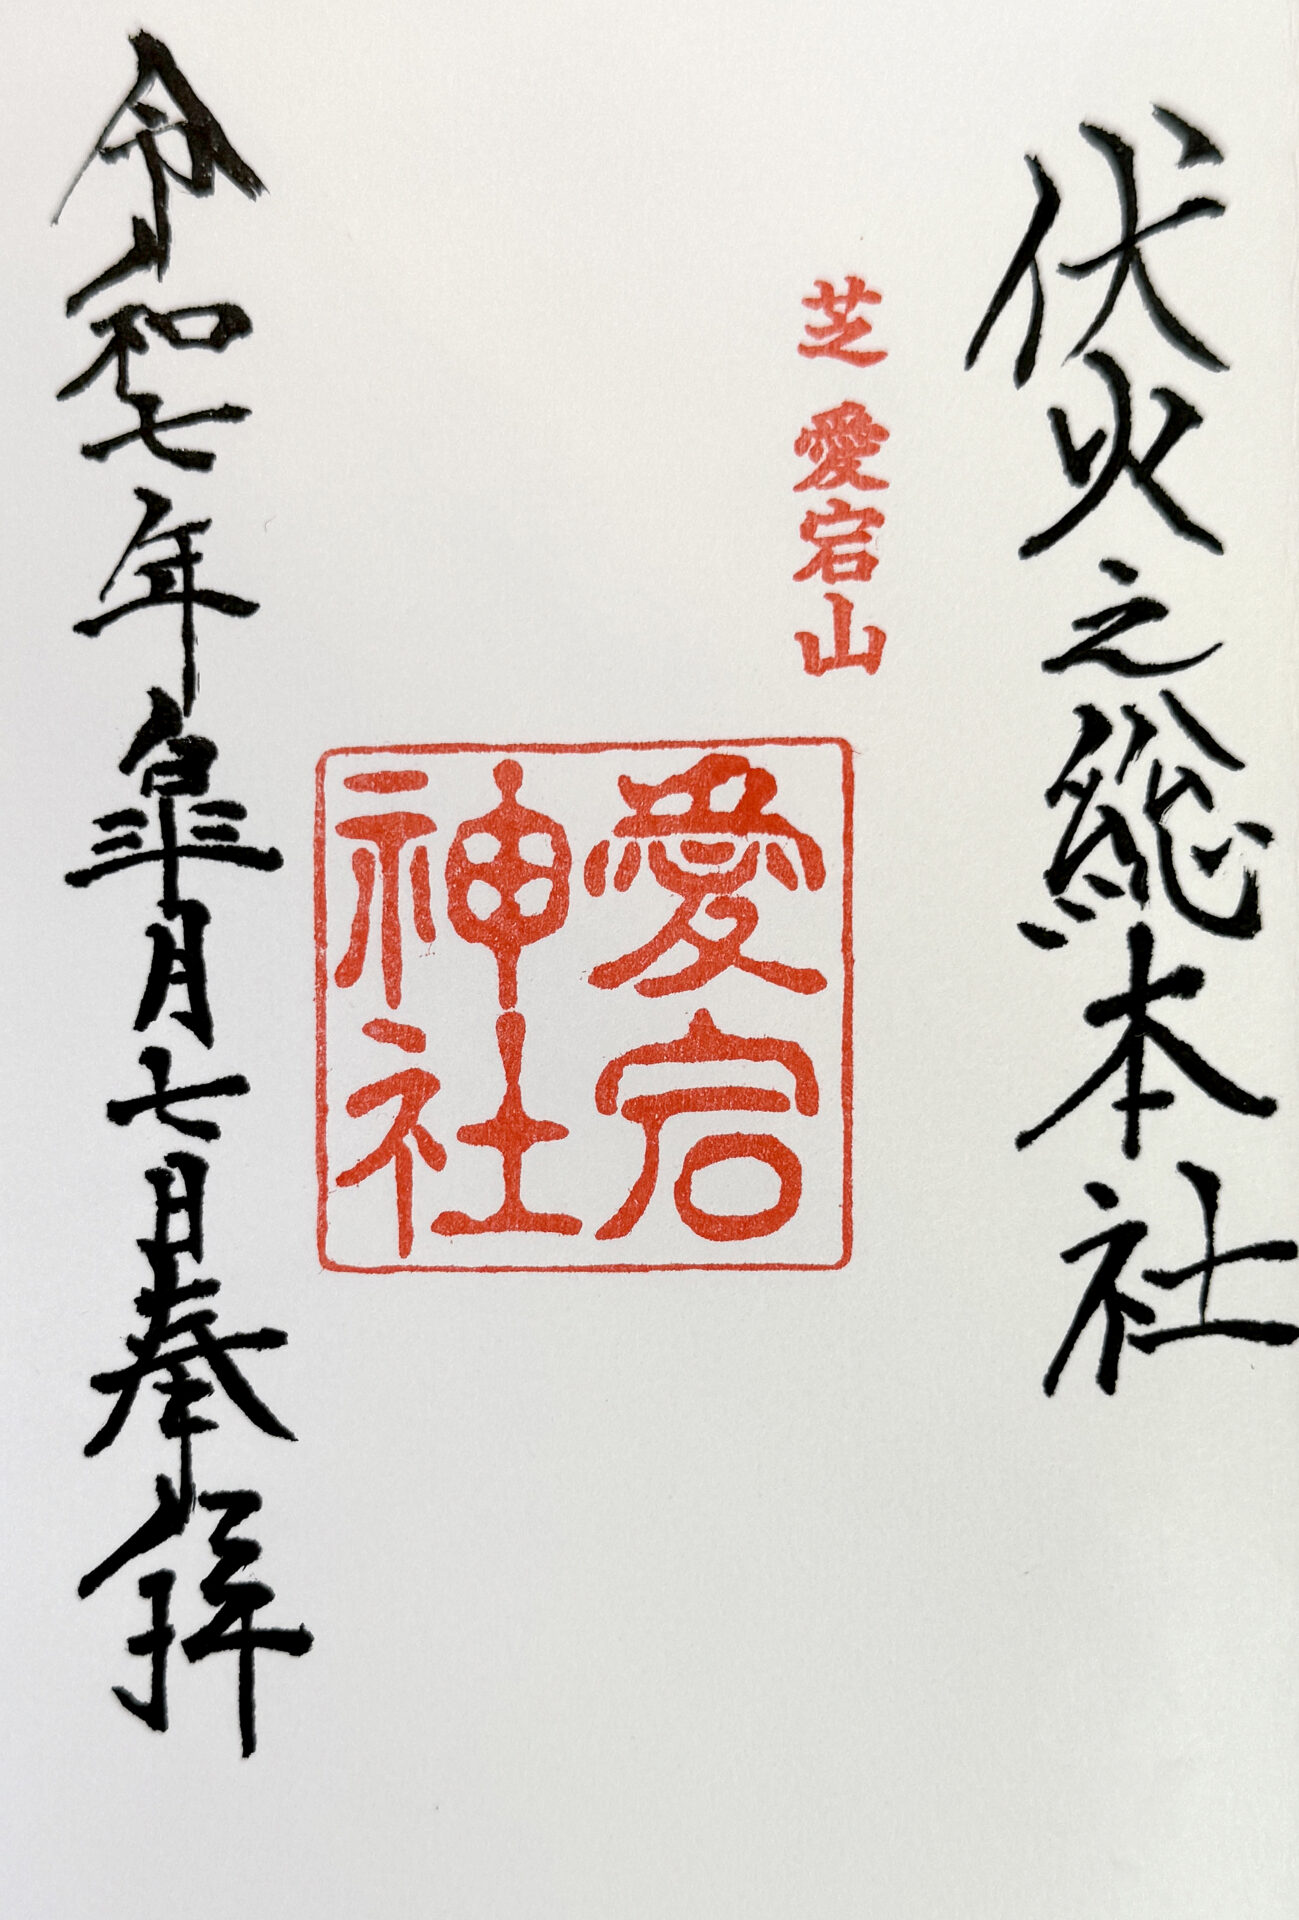 伏火之総本社
芝 愛宕山
愛宕
神社
令和七年皐月七日奉拝